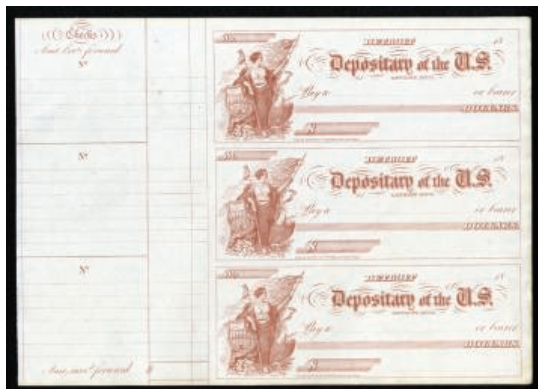 Checks
Amt. Bro't forward
No
No
No
Amt. carr'd forward $
No
DETROIT 18
Depositary of the U.S.
Pay to or bearer
DOLLARS.
$
No
DETROIT 18
Depositary of the U.S.
Pay to or bearer
DOLLARS.
$
No
DETROIT 18
Depositary of the U.S.
Pay to or bearer
DOLLARS.
$